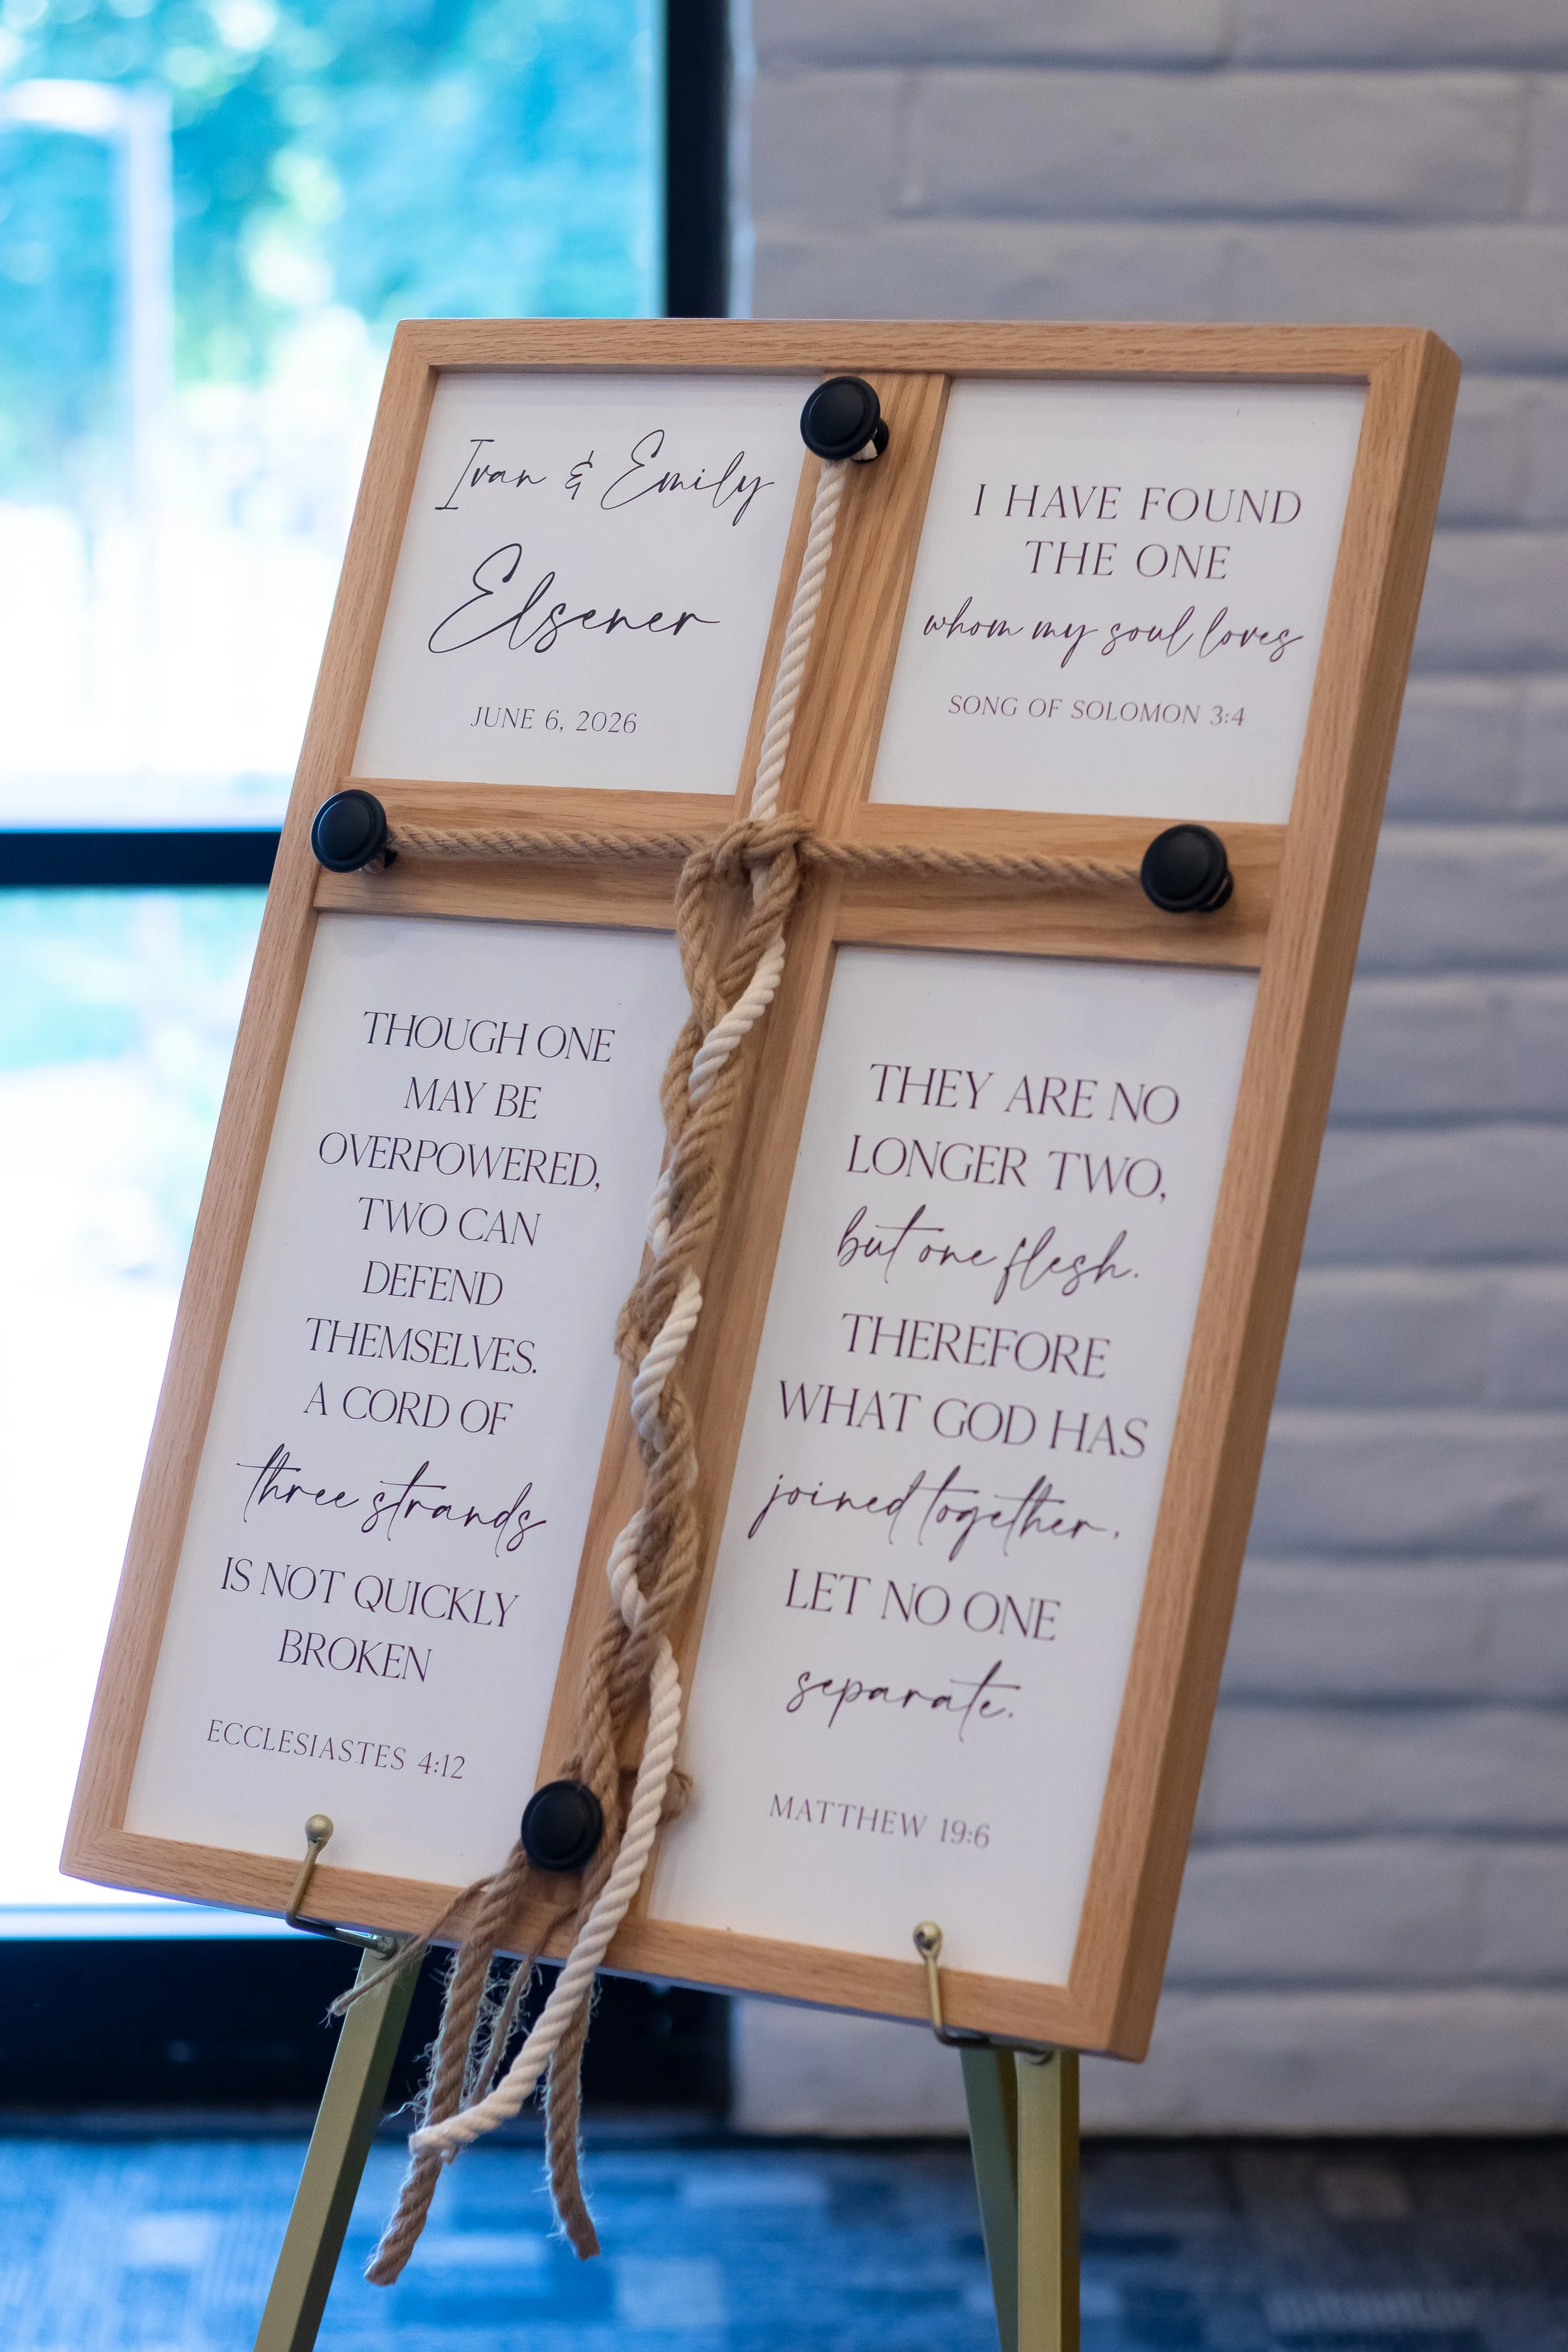 Ivan & Emily
Elsener
JUNE 6, 2026
I HAVE FOUND
THE ONE
whom my soul loves
SONG OF SOLOMON 3:4
THOUGH ONE
MAY BE
OVERPOWERED,
TWO CAN
DEFEND
THEMSELVES.
A CORD OF
three strands
IS NOT QUICKLY
BROKEN
ECCLESIASTES 4:12
THEY ARE NO
LONGER TWO,
but one flesh.
THEREFORE
WHAT GOD HAS
joined together,
LET NO ONE
separate.
MATTHEW 19:6